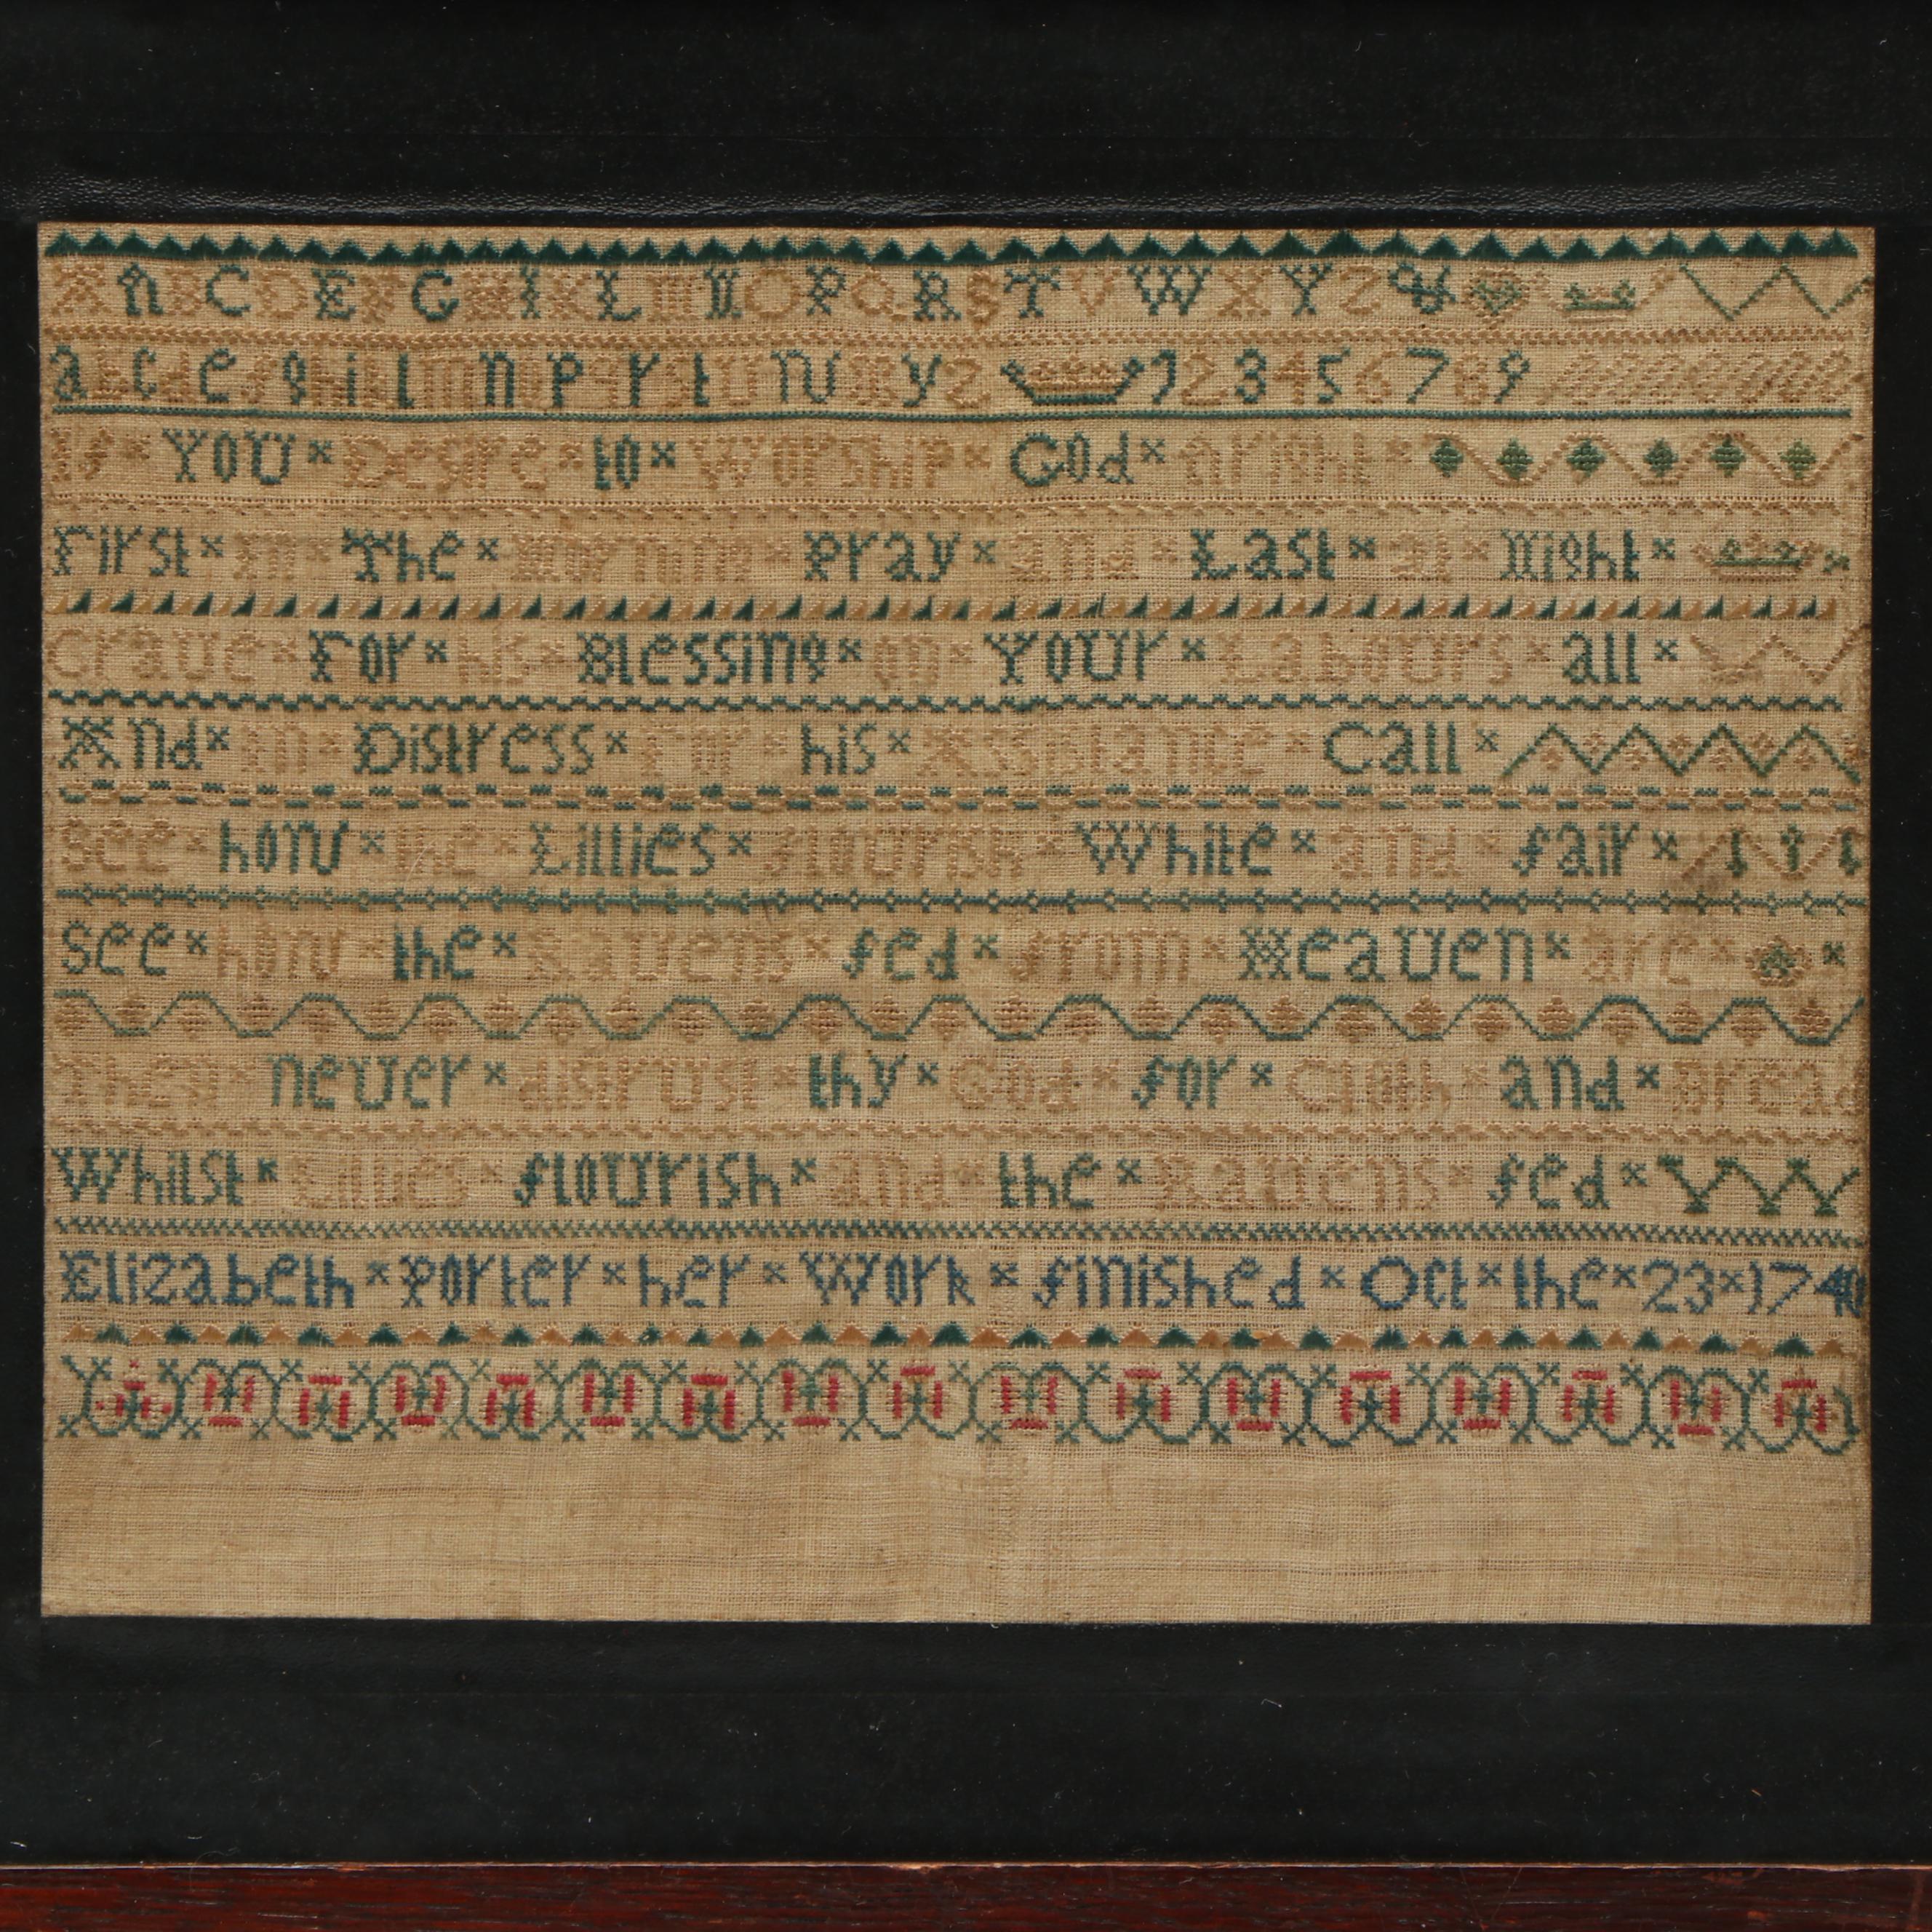 A B C D E F G H I K L M N O P Q R S T V W X Y Z &
a b c d e f g h i k l m n o p q r s t u w x y z 1 2 3 4 5 6 7 8 9
If × You × Desire × to × Worship × God × aright ×
First × in × The × Mornin × Pray × and × Last × at × Night ×
Crave × For × his × Blessing × on × Your × Labours × all ×
And × in × Distress × For × his × Assistance × Call ×
See × how × the × Lillies × flourish × White × and × fair ×
See × how × the × Ravens × fed × from × Heaven × are ×
Then × never × distrust × thy × God × for × Cloth × and × Bread
Whilst × Lillies × flourish × and × the × Ravens × fed ×
Elizabeth × Porter × her × Work × finished × Oct × the × 23 × 1740